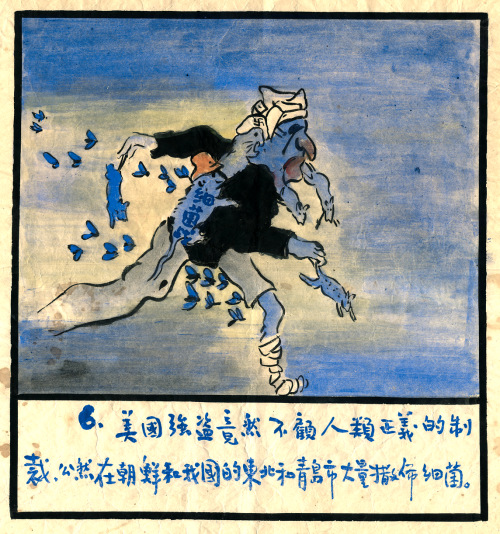 細菌
6. 美國強盜竟然不顧人類正義的制
裁,公然在朝鮮和我國的東北和青島市大量撒佈細菌。